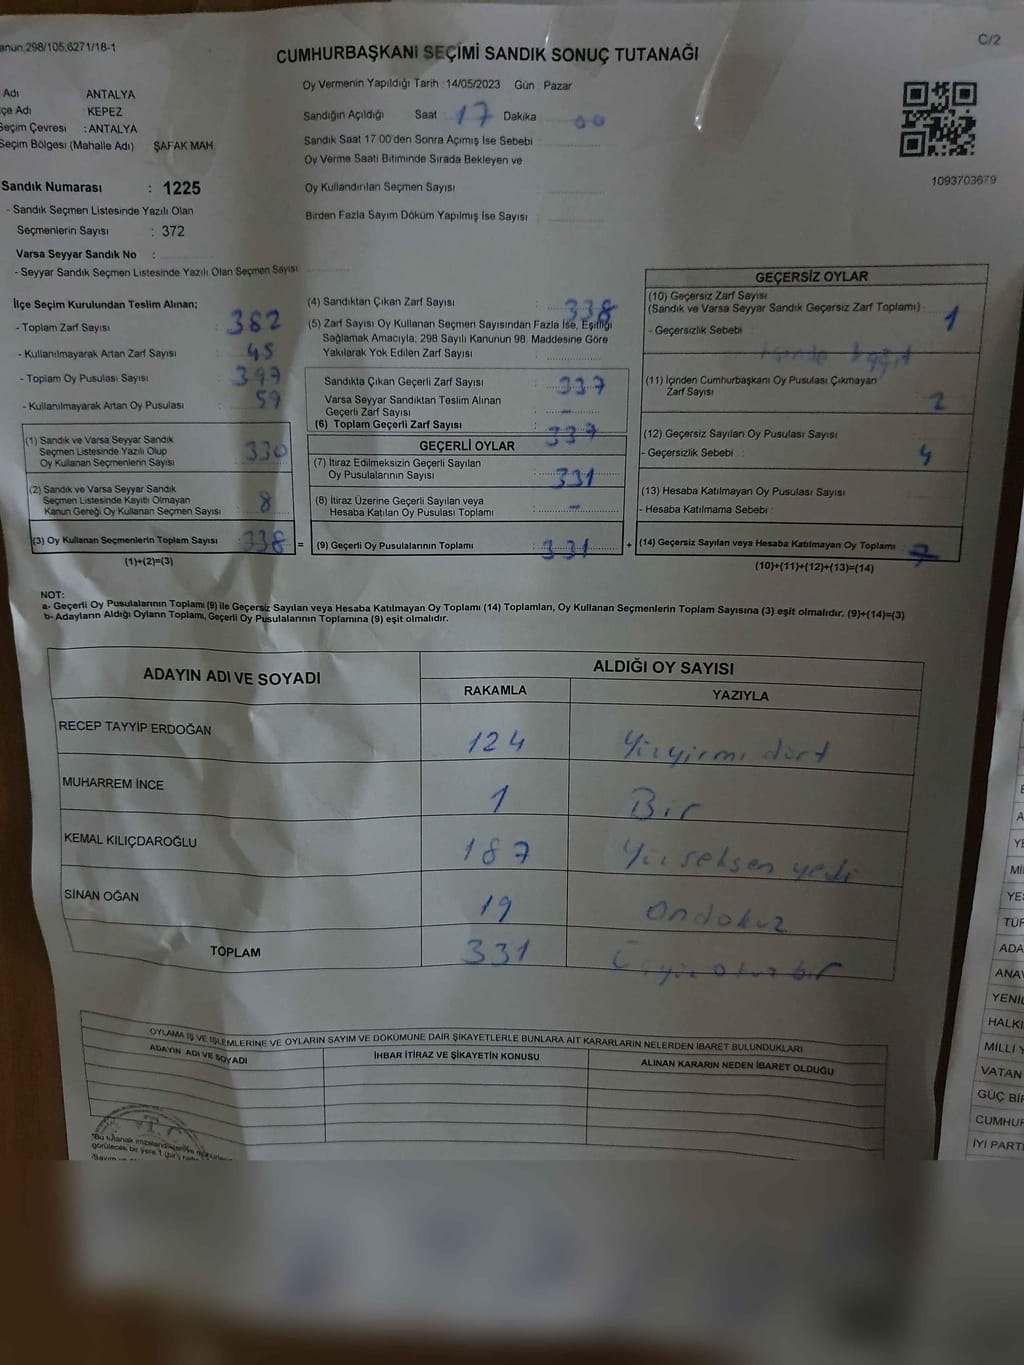 anun.298/105;6271/18-1
C/2
CUMHURBAŞKANI SEÇİMİ SANDIK SONUÇ TUTANAĞI
Oy Vermenin Yapıldığı Tarih : 14/05/2023 Gün : Pazar
Adı ANTALYA
çe Adı KEPEZ
Seçim Çevresi : ANTALYA
Seçim Bölgesi (Mahalle Adı) ŞAFAK MAH.
Sandığın Açıldığı Saat 17 Dakika 00
Sandık Saat 17:00'den Sonra Açımış İse Sebebi :
Oy Verme Saati Bitiminde Sırada Bekleyen ve
Oy Kullandırılan Seçmen Sayısı :
Birden Fazla Sayım Döküm Yapılmış İse Sayısı :
1093703679
Sandık Numarası : 1225
- Sandık Seçmen Listesinde Yazılı Olan
Seçmenlerin Sayısı : 372
Varsa Seyyar Sandık No :
- Seyyar Sandık Seçmen Listesinde Yazılı Olan Seçmen Sayısı
İlçe Seçim Kurulundan Teslim Alınan;
- Toplam Zarf Sayısı : 382
- Kullanılmayarak Artan Zarf Sayısı : 45
- Toplam Oy Pusulası Sayısı : 397
- Kullanılmayarak Artan Oy Pusulası : 59
(1) Sandık ve Varsa Seyyar Sandık
Seçmen Listesinde Yazılı Olup
Oy Kullanan Seçmenlerin Sayısı 330
(2) Sandık ve Varsa Seyyar Sandık
Seçmen Listesinde Kayıtlı Olmayan
Kanun Gereği Oy Kullanan Seçmen Sayısı 8
(3) Oy Kullanan Seçmenlerin Toplam Sayısı 338 =
(1)+(2)=(3)
(4) Sandıktan Çıkan Zarf Sayısı : 338
(5) Zarf Sayısı Oy Kullanan Seçmen Sayısından Fazla İse, Eşitliği
Sağlamak Amacıyla; 298 Sayılı Kanunun 98. Maddesine Göre
Yakılarak Yok Edilen Zarf Sayısı :
Sandıkta Çıkan Geçerli Zarf Sayısı : 337
Varsa Seyyar Sandıktan Teslim Alınan
Geçerli Zarf Sayısı : -
(6) Toplam Geçerli Zarf Sayısı : 337
GEÇERLİ OYLAR
(7) İtiraz Edilmeksizin Geçerli Sayılan
Oy Pusulalarının Sayısı : 331
(8) İtiraz Üzerine Geçerli Sayılan veya
Hesaba Katılan Oy Pusulası Toplamı : -
(9) Geçerli Oy Pusulalarının Toplamı : 331 +
GEÇERSİZ OYLAR
(10) Geçersiz Zarf Sayısı
(Sandık ve Varsa Seyyar Sandık Geçersiz Zarf Toplamı) : 1
- Geçersizlik Sebebi :
(11) İçinden Cumhurbaşkanı Oy Pusulası Çıkmayan
Zarf Sayısı : 2
(12) Geçersiz Sayılan Oy Pusulası Sayısı :
- Geçersizlik Sebebi : 4
(13) Hesaba Katılmayan Oy Pusulası Sayısı :
- Hesaba Katılmama Sebebi :
(14) Geçersiz Sayılan veya Hesaba Katılmayan Oy Toplamı : 7
(10)+(11)+(12)+(13)=(14)
NOT:
a- Geçerli Oy Pusulalarının Toplamı (9) ile Geçersiz Sayılan veya Hesaba Katılmayan Oy Toplamı (14) Toplamları, Oy Kullanan Seçmenlerin Toplam Sayısına (3) eşit olmalıdır. (9)+(14)=(3)
b- Adayların Aldığı Oyların Toplamı, Geçerli Oy Pusulalarının Toplamına (9) eşit olmalıdır.
ADAYIN ADI VE SOYADI
ALDIĞI OY SAYISI
RAKAMLA YAZIYLA
RECEP TAYYİP ERDOĞAN 124 Yüzyirmi dört
MUHARREM İNCE 1 Bir
KEMAL KILIÇDAROĞLU 187 Yüz seksen yedi
SİNAN OĞAN 19 Ondokuz
TOPLAM 331 Üçyüz otuz bir
OYLAMA İŞ VE İŞLEMLERİNE VE OYLARIN SAYIM VE DÖKÜMÜNE DAİR ŞİKAYETLERLE BUNLARA AİT KARARLARIN NELERDEN İBARET BULUNDUKLARI
ADAYIN ADI VE SOYADI
İHBAR İTİRAZ VE ŞİKAYETİN KONUSU
ALINAN KARARIN NEDEN İBARET OLDUĞU
YENİL
HALKI
MİLLİ Y
VATAN
GÜÇ BİR
CUMHUR
İYİ PARTİ